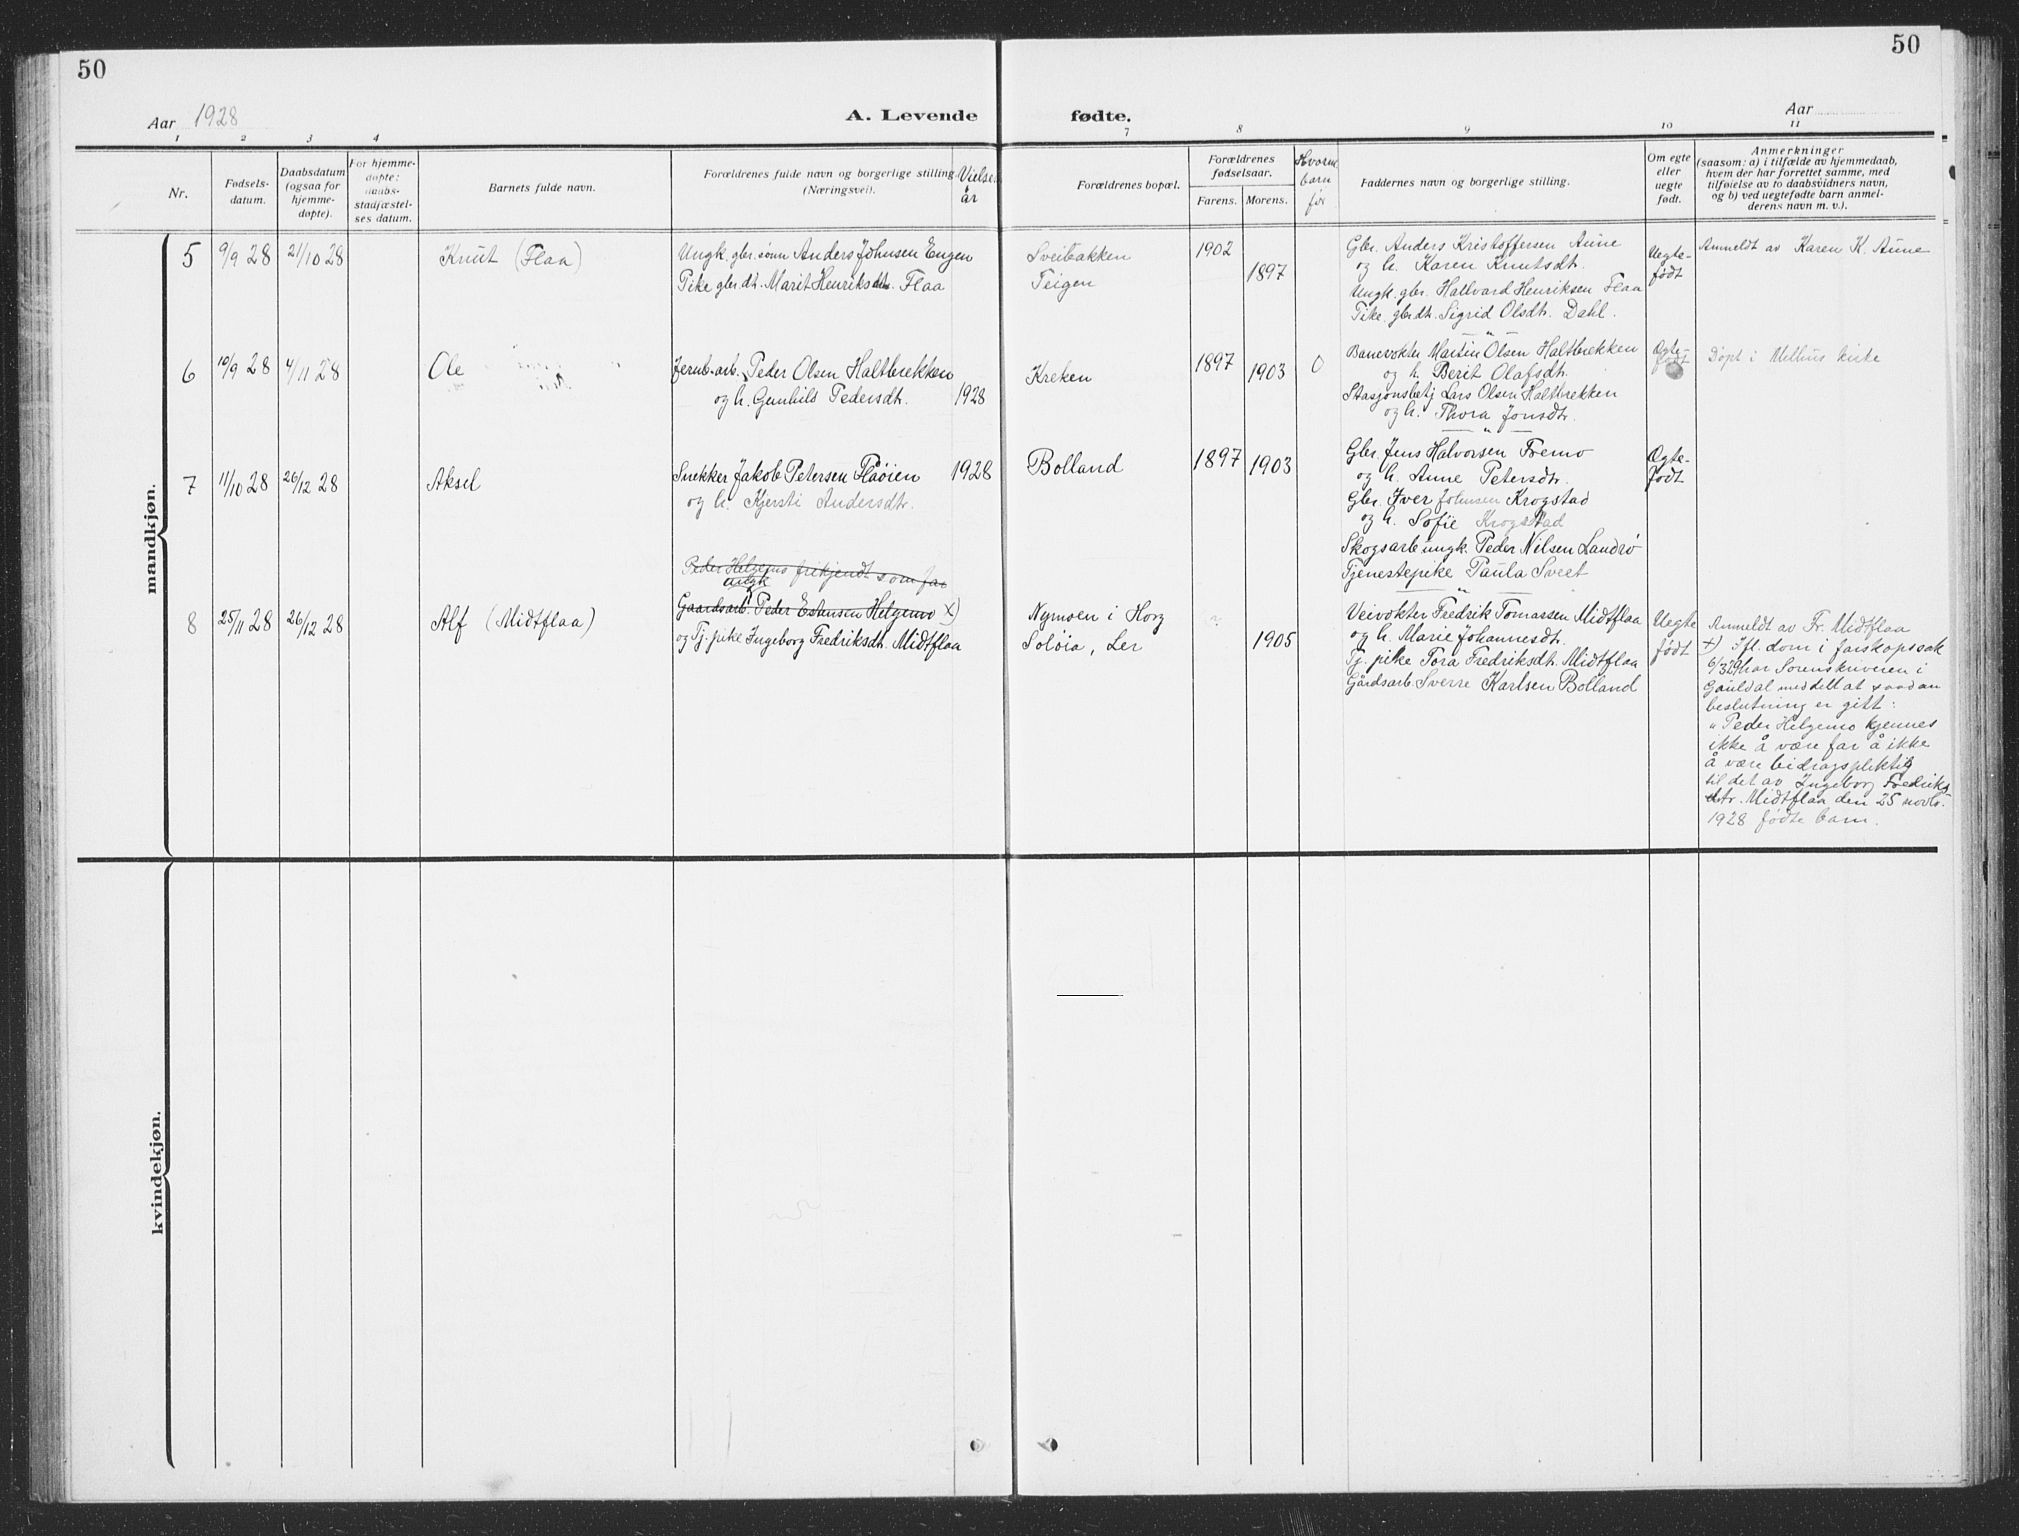 50
50
Aar 1928
A. Levende
fødte.
Aar
1 2 3 4
7 8 9 10 11
Nr.
Fødsels-
datum.
Daabsdatum
(ogsaa for
hjemme-
døpte).
For hjemme-
døpte:
daabs-
stadfæstel-
ses datum.
Barnets fulde navn.
Forældrenes fulde navn og borgerlige stilling
(Næringsvei).
Vielses
år
Forældrenes bopæl.
Forældrenes
fødselsaar.
Farens. Morens.
barn
før
Faddernes navn og borgerlige stilling.
Om egte
eller
uegte
født.
Anmerkninger
(saasom: a) i tilfælde av hjemmedaab,
hvem der har forrettet samme, med
tilføielse av to daabsvidners navn,
og b) ved uegtefødte barn anmel-
derens navn m. v.).
mandkjøn.
5 9/9 28 21/10 28 Knut (Flaa)
Ungk. gbr.sønn Anders Johnsen Engen
Pike gbr.dt. Marit Henriksdt. Flaa
Sveibakken
Teigen
1902
1897
Gbr. Anders Kristoffersen Aune
og h. Karen Knutsdt.
Ungk. gbr. Hallvard Henriksen Flaa
Pike gbr.dt. Sigrid Olsdt. Dahl.
Uegte-
født
Anmeldt av Karen K. Aune
6 10/9 28 4/11 28 Ole
Jernb.arb. Peder Olsen Haltbrekken
og h. Gunhild Pedersdt. 1928
Kreken
1897 1903 0
Banevokter Martin Olsen Haltbrekken
og h. Berit Olafsdt.
Stasjonsbetj Lars Olsen Haltbrekken
og h. Thora Jonsdt.
Ægte-
født
Døpt i Melhus kirke
7 11/10 28 26/12 28 Aksel
Snekker Jakob Petersen Flåøien 1928
og h. Kjersti Andersdt.
Bolland
1897 1903
Gbr. Jens Halvorsen Fremo
og h. Anne Petersdtr.
Gbr. Iver Johnsen Krogstad
og h. Sofie Krogstad
Skogsarb ungk. Peder Nilsen Landrø
Tjenestepike Paula Sveet
Ægte-
født
Peder Helgemo frikjendt som far
ungk
8 25/11 28 26/12 28 Alf (Midtflaa)
Gaardsarb. Peder Estensen Helgemo x)
og Tj. pike Ingeborg Fredriksdt. Midtflaa
Nymoen i Horg
Soløia, Ler
?
1905
Veivokter Fredrik Tomassen Midtflaa
og h. Marie Johannesdt.
Tj. pike Tora Fredriksdt. Midtflaa
Gårdsarb. Sverre Karlsen Bolland
Uegte
født
Anmeldt av Fr. Midtflaa
x) Ifl. dom i farskapssak
6/3 29 har Sorenskriveren i
Gauldal meddelt at saadan
beslutning er gitt:
"Peder Helgemo kjennes
ikke å være far å ikke
å være bidragspliktig
til det av Ingeborg Fredriks
dtr. Midtflaa den 25 novb.
1928 fødte barn.
kvindekjøn.